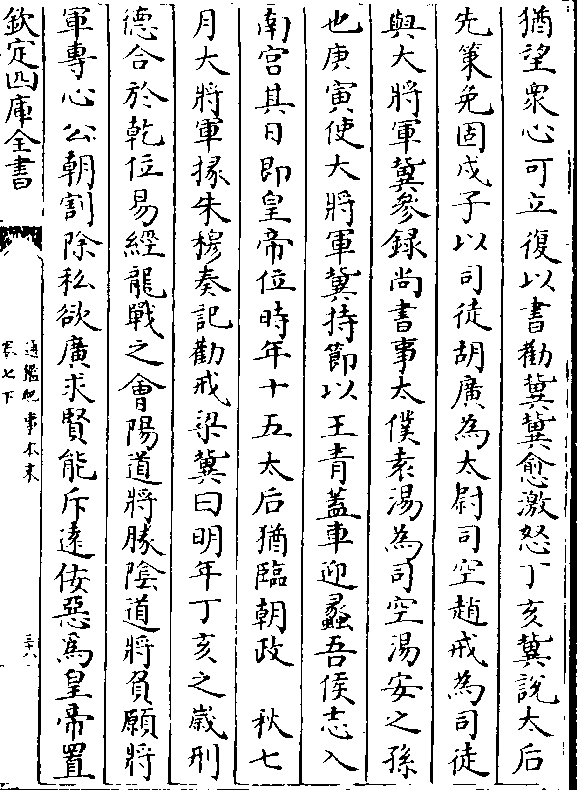 猶望衆心可立復以書勸冀冀愈激怒丁亥冀說太后
先策免固戊子以司徒胡廣為太尉司空趙戒為司徒
與大將軍冀參録尚書事太僕袁湯為司空湯安之孫
也庚寅使大將軍冀持節以王青蓋車迎蠡吾侯志入
南宮其日即皇帝位時年十五太后猶臨朝政　秋七
月大將軍掾朱穆奏記勸戒梁冀曰明年丁亥之嵗刑
德合於乾位易經龍戰之會陽道將勝隂道將負願將
軍專心公朝割除私欲廣求賢能斥逺佞惡爲皇帝置
欽定四庫全書
通鑑紀事本末
卷七下
三十八